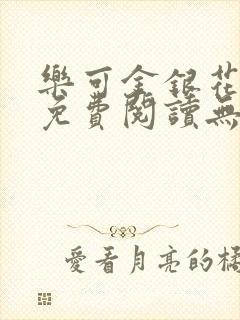 樂可金銀花
免費閱讀無
愛看月亮的橘